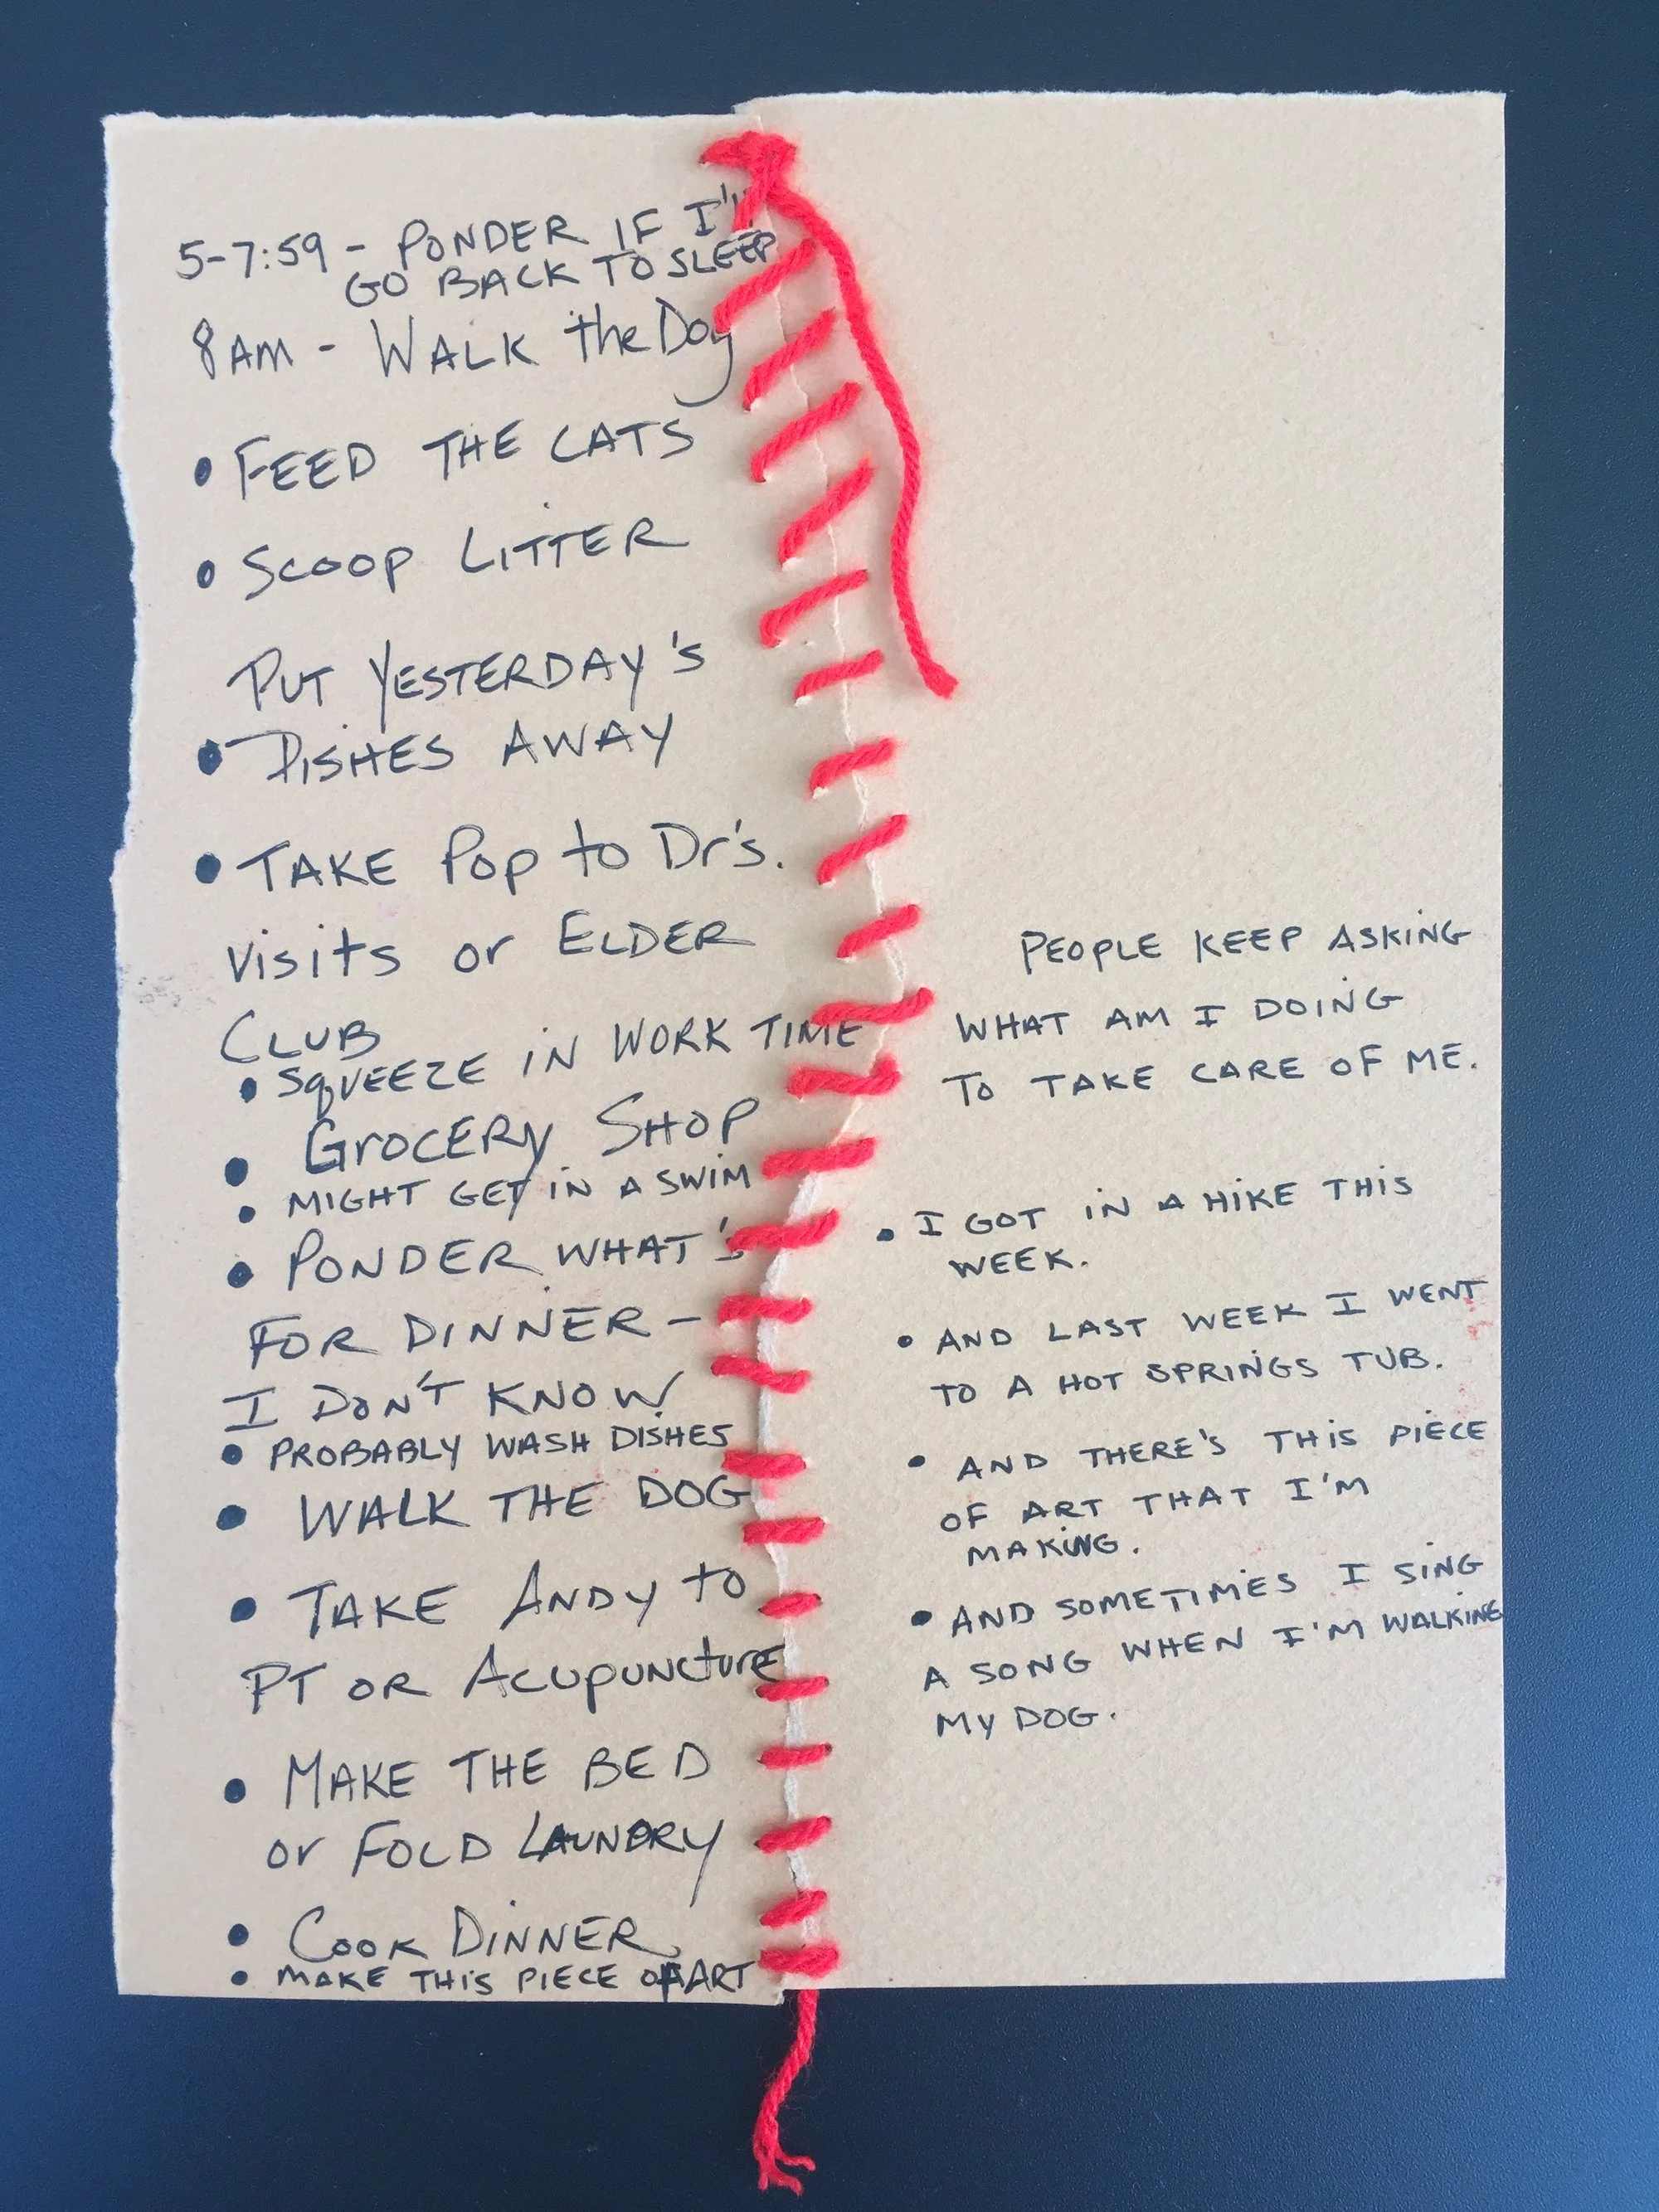 5-7:59 - PONDER IF I'll
GO BACK TO SLEEP
8AM - WALK the Dog
• FEED THE CATS
• SCOOP LITTER
PUT YESTERDAY'S
• DISHES AWAY
• TAKE POP to Dr's.
visits or ELDER
CLUB
• SQUEEZE IN WORK TIME
• GROCERY SHOP
• MIGHT GET IN A SWIM
• PONDER WHAT'S
FOR DINNER -
I DON'T KNOW
• PROBABLY WASH DISHES
• WALK THE DOG
• TAKE ANDY to
PT OR Acupuncture
• MAKE THE BED
or FOLD LAUNDRY
• COOK DINNER
• MAKE THIS PIECE OF ART
PEOPLE KEEP ASKING
WHAT AM I DOING
TO TAKE CARE OF ME.
• I GOT IN A HIKE THIS
WEEK.
• AND LAST WEEK I WENT
TO A HOT SPRINGS TUB.
• AND THERE'S THIS PIECE
OF ART THAT I'M
MAKING.
• AND SOMETIMES I SING
A SONG WHEN I'M WALKING
MY DOG.